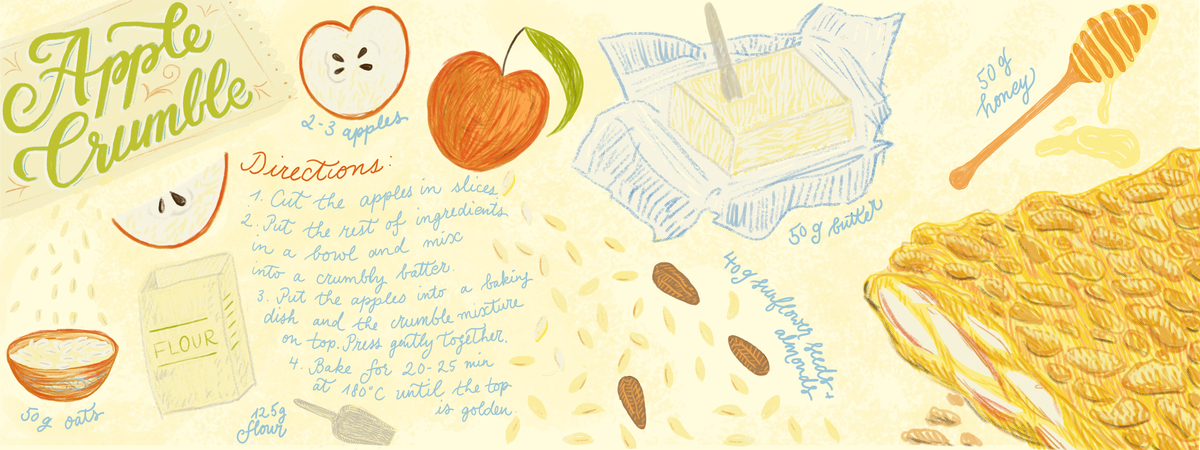 Apple
Crumble
2-3 apples
Directions:
1. Cut the apples in slices
2. Put the rest of ingredients
in a bowl and mix
into a crumbly batter.
3. Put the apples into a baking
dish and the crumble mixture
on top. Press gently together.
4. Bake for 20-25 min
at 180°C until the top
is golden.
50g oats
FLOUR
125g
flour
50g butter
40g sunflower seeds +
almonds
50g
honey